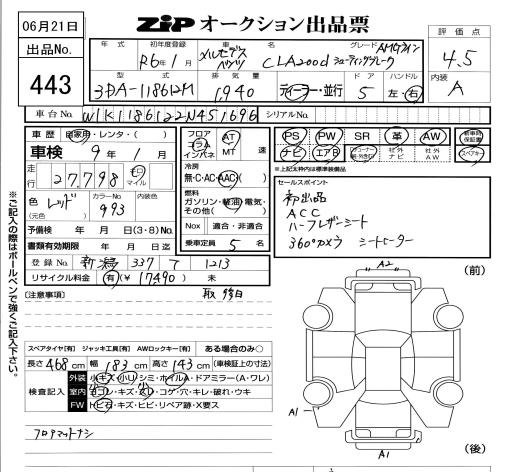 06月21日
ZIP オークション出品票
出品No.
443
年式
初年度登録
R6年1月
車名
メルセデスベンツ CLA200d シューティングブレーク
グレード
AMGライン
評価点
4.5
内装
A
型式
3DA-118612M
排気量
1,940
ディーラー・並行
ドア
5
ハンドル
左・右
車台No.
W1K1186122N451696
シリアルNo.
車歴 自家用・レンタ・( )
車検 9年1月
走行 27,798 キロ マイル
色(元色) レッド
カラーNo.
993
予備検 年 月 日(3・8)No.
書類有効期限 年 月 日迄
登録No. 新潟 337 て 1213
リサイクル料金 有(¥17490) 未
フロア コラム インパネ
AT
MT
速
冷房
無・C・AC・AAC( )
燃料
ガソリン・軽油・電気・その他( )
Nox 適合・非適合
乗車定員 5 名
PS PW SR 革 AW 新車時保証書
ナビ エアB 社外ナビ 社外AW スペアキー
※上記太枠内は標準装備品
セールスポイント
初出品
ACC
ハーフレザーシート
360°カメラ シートヒーター
※ご記入の際はボールペンで強くご記入下さい。
[注意事項]
スペアタイヤ[有] ジャッキ工具[有] AWロックキー[有] ある場合のみ○
長さ468cm 幅183cm 高さ143cm (車検証上の寸法)
検査記入
外装 小キズ・小U シミ・ホイルA・ドアミラー(A・ワレ)
室内 ヨゴレ・キズ・スレ・コゲ・穴・キレ・破れ・ウキ
FW トビ石・キズ・ヒビ・リペア跡・X要ス
フロアマットナシ
(前)
A2
A1
A1
(後)